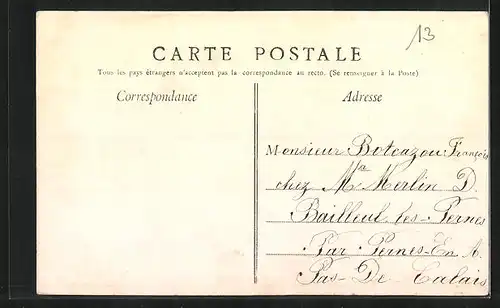 13
CARTE POSTALE
Tous les pays étrangers n'acceptent pas la correspondance au recto. (Se renseigner à la Poste)
Correspondance
Adresse
Monsieur Botcazou François
chez Mme Merlin D.
Bailleul les-Pernes
Par Pernes-En A.
Pas-De Calais